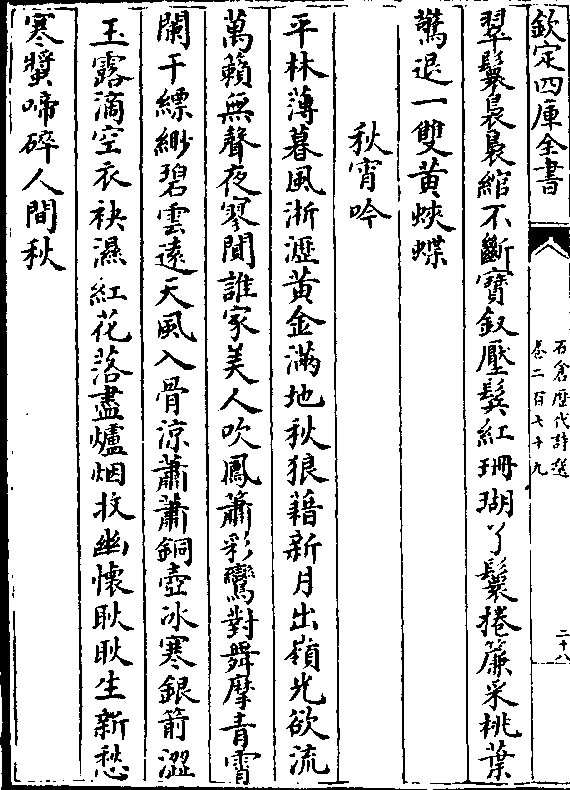 欽定四庫全書
石倉歷代詩選
卷二百七十九
二十八
翠鬟裊裊綰不斷寶釵壓鬢紅珊瑚丫鬟捲簾采桃葉
驚退一雙黃蛺蝶
秋宵吟
平林薄暮風淅瀝黃金滿地秋狼藉新月出嶺光欲流
萬籟無聲夜寥闃誰家美人吹鳳簫彩鸞對舞摩青霄
闌干縹緲碧雲遠天風入骨涼蕭蕭銅壺冰寒銀箭澀
玉露滴空衣袂濕紅花落盡爐烟收幽懷耿耿生新愁
寒螿啼碎人間秋